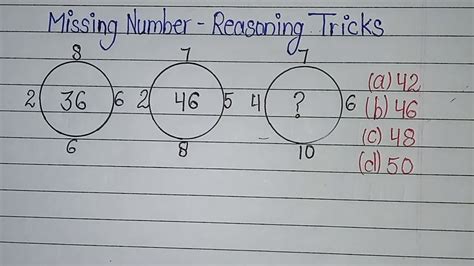 Missing Number - Reasoning Tricks
8 7 7
2 36 6 2 46 5 4 ? 6
6 8 10
(a) 42
(b) 46
(c) 48
(d) 50